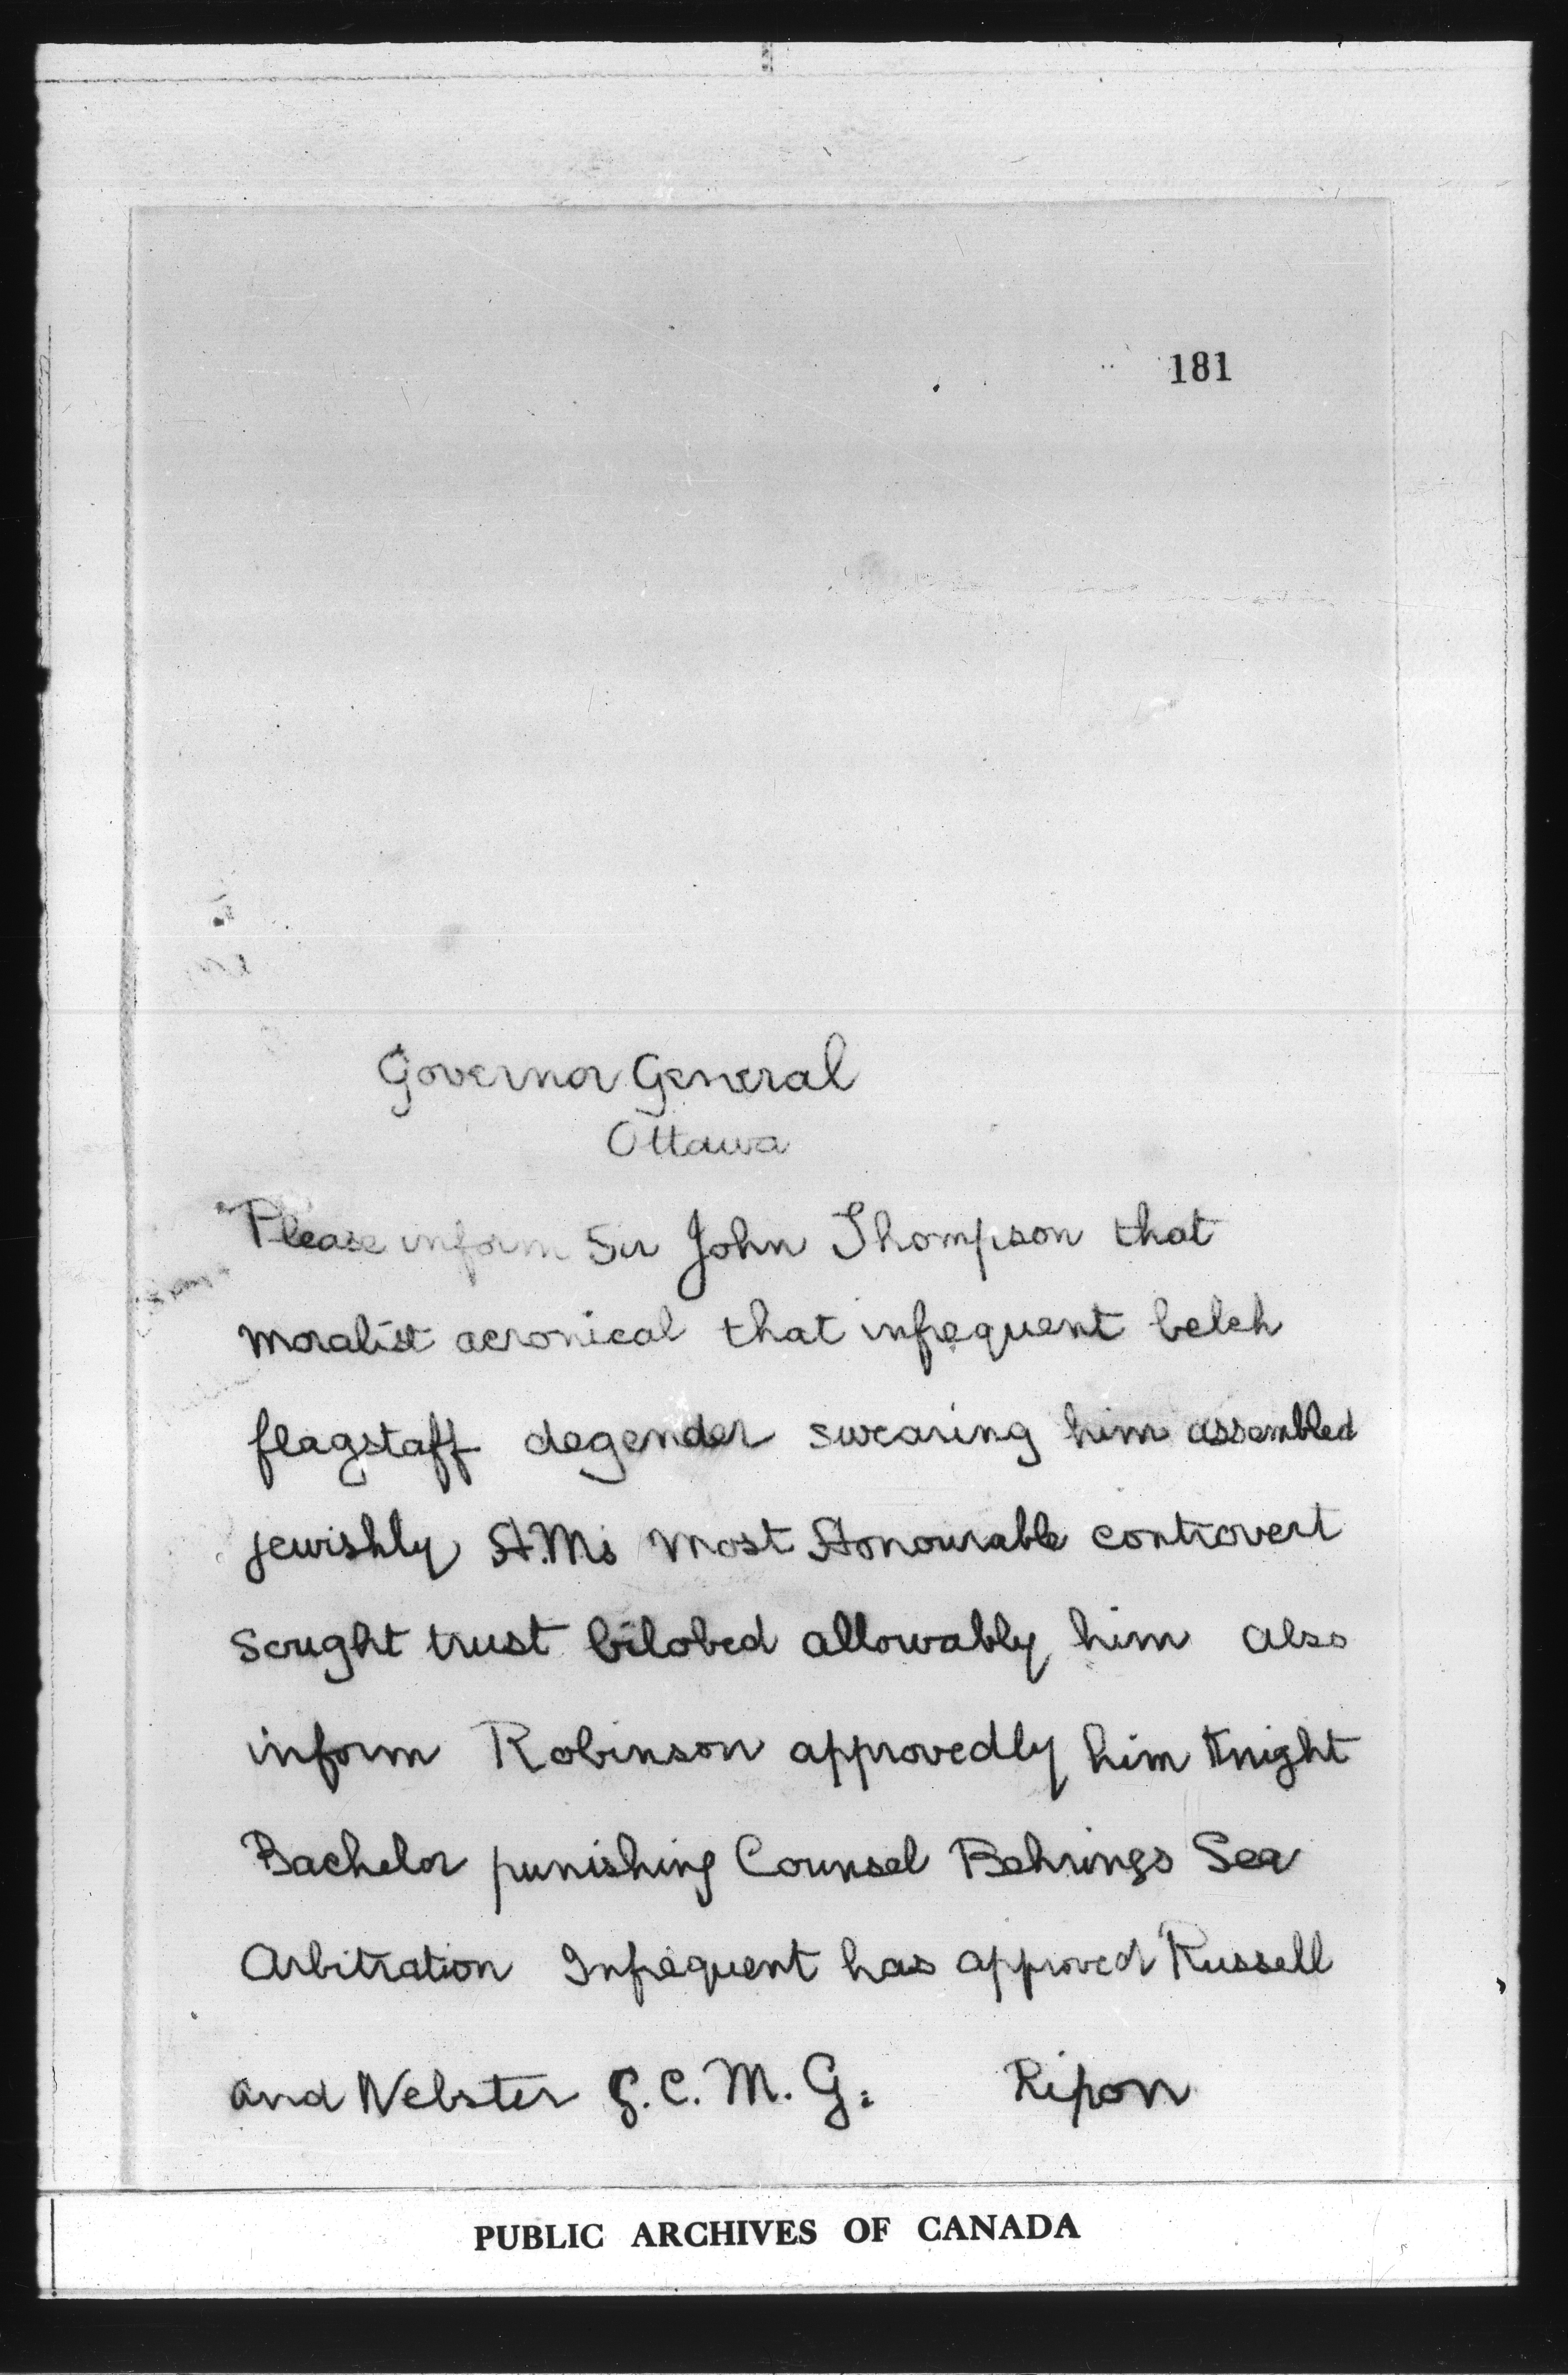 181
Governor General
Ottawa
Please inform Sir John Thompson that
moralist acronical that infrequent belch
flagstaff degender swearing him assembled
jewishly H.Ms Most Honourable controvert
sought trust bilobed allowably him also
inform Robinson approvedly him Knight
Bachelor punishing Counsel Behrings Sea
Arbitration Infrequent has approved Russell
and Webster G.C.M.G. Ripon
PUBLIC ARCHIVES OF CANADA